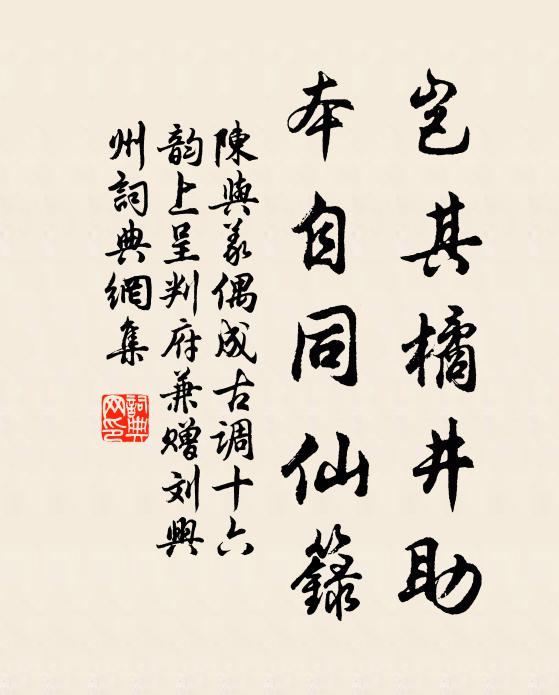 岂其橘井助
本自同仙籙
陳與义偶成古调十六
韵上呈判府兼赠刘興
州詞典網集
詞典
网印